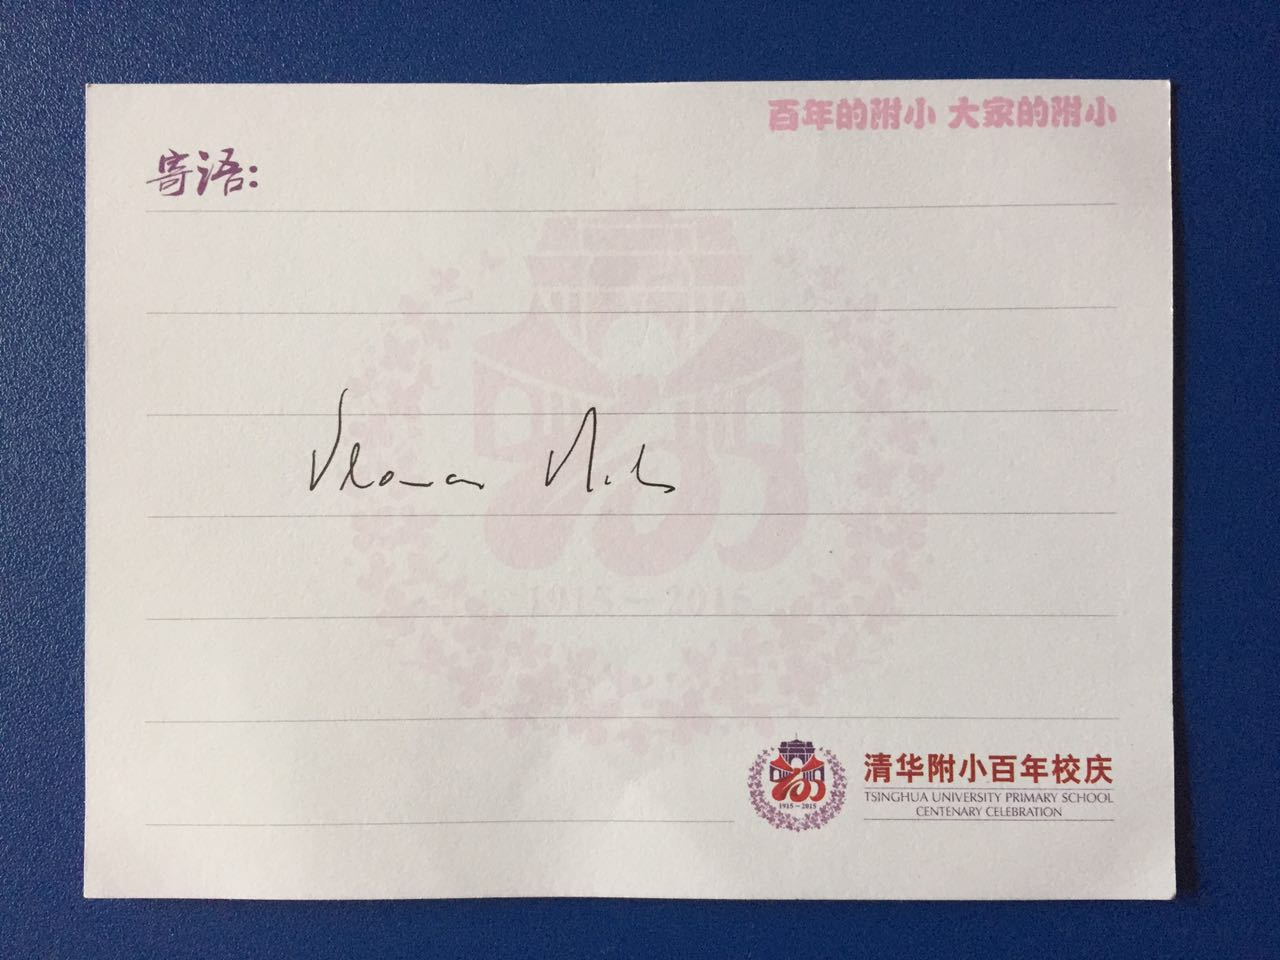 百年的附小 大家的附小
寄语:
1915-2015
清华附小百年校庆
TSINGHUA UNIVERSITY PRIMARY SCHOOL
CENTENARY CELEBRATION
1915-2015